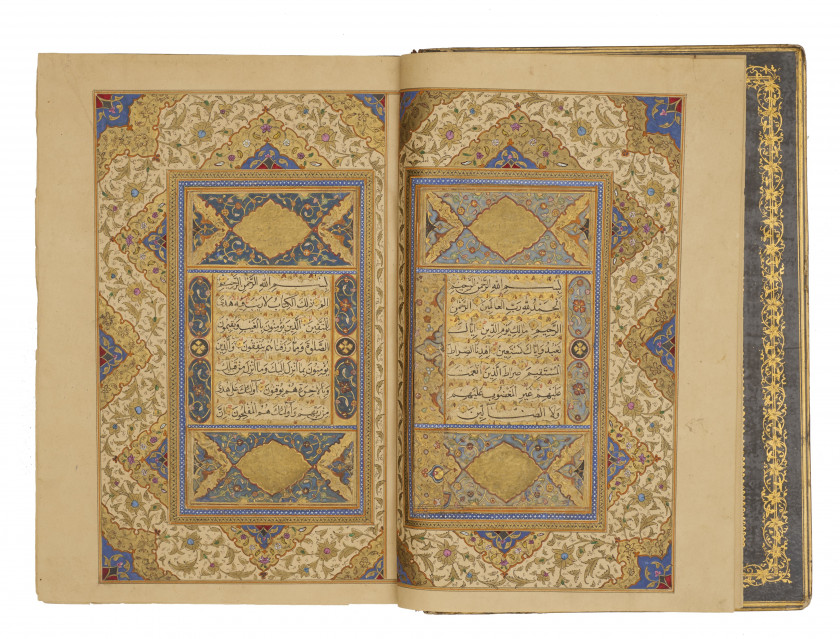 بسم الله الرحمن الرحيم
الحمد لله رب العالمين الرحمن
الرحيم مالك يوم الدين اياك
نعبد واياك نستعين اهدنا الصراط
المستقيم صراط الذين انعمت
عليهم غير المغضوب عليهم
ولا الضالين
بسم الله الرحمن الرحيم
الم ذلك الكتاب لا ريب فيه هدى
للمتقين الذين يؤمنون بالغيب ويقيمون
الصلوة ومما رزقناهم ينفقون والذين
يؤمنون بما انزل اليك وما انزل من قبلك
وبالاخرة هم يوقنون اولئك على هدى
من ربهم واولئك هم المفلحون ان